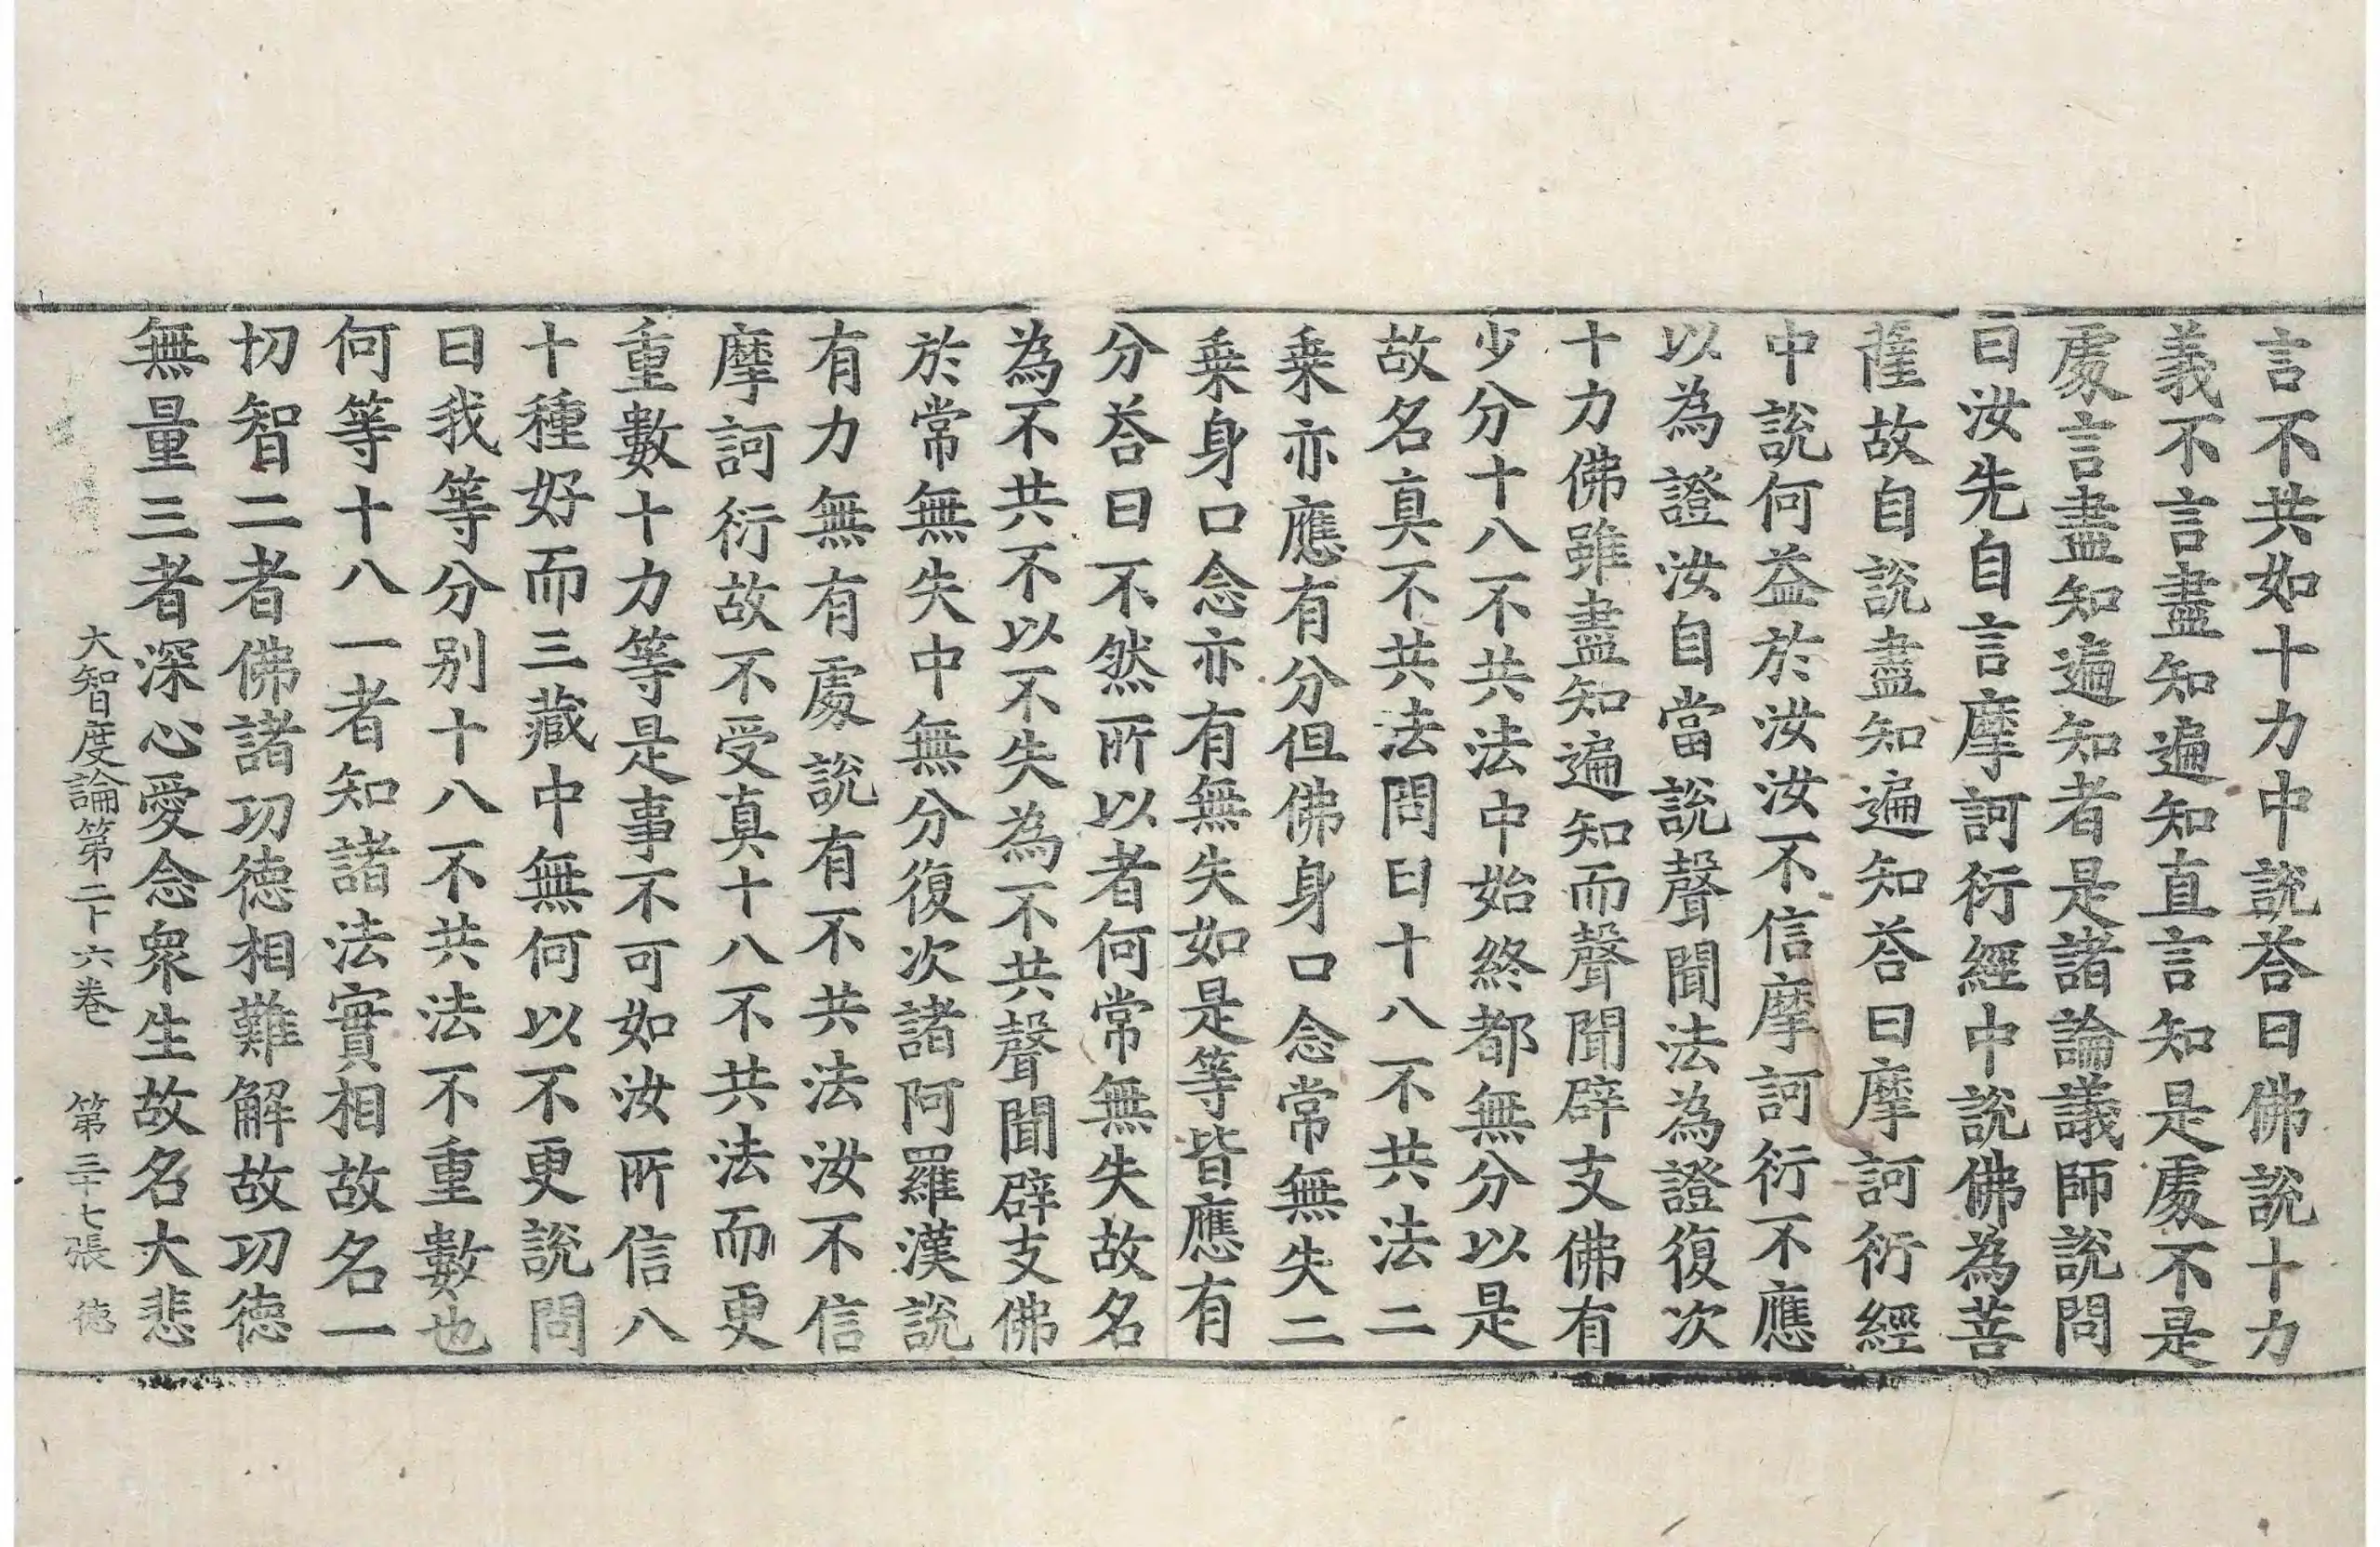 言不共如十力中說荅曰佛說十力
義不言盡知遍知直言知是處不是
處言盡知遍知者是諸論議師說問
曰汝先自言摩訶衍經中說佛為菩
薩故自說盡知遍知荅曰摩訶衍經
中說何益於汝汝不信摩訶衍不應
以為證汝自當說聲聞法為證復次
十力佛雖盡知遍知而聲聞辟支佛有
少分十八不共法中始終都無分以是
故名真不共法問曰十八不共法二
乗亦應有分但佛身口念常無失二
乗身口念亦有無失如是等皆應有
分荅曰不然所以者何常無失故名
為不共不以不失為不共聲聞辟支佛
於常無失中無分復次諸阿羅漢說
有力無有處說有不共法汝不信
摩訶衍故不受真十八不共法而更
重數十力等是事不可如汝所信八
十種好而三藏中無何以不更說問
曰我等分別十八不共法不重數也
何等十八一者知諸法實相故名一
切智二者佛諸功德相難解故功德
無量三者深心愛念衆生故名大悲
大智度論第二十六卷 第三十七張 德